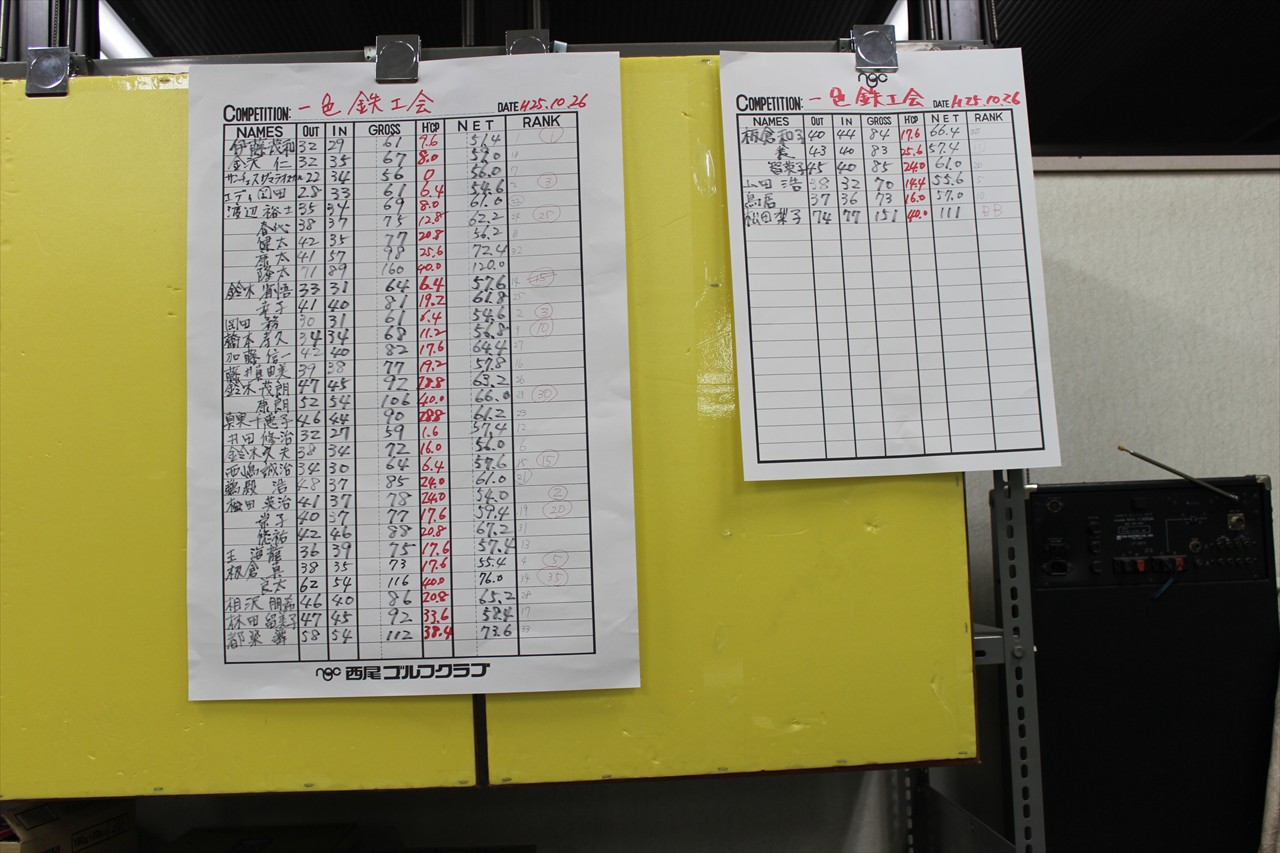 COMPETITION: 一色鉄工会 DATE H25.10.26
NAMES OUT IN GROSS H'CP NET RANK
伊藤茂和 32 29 61 9.6 51.4 ①
金沢 仁 32 35 67 8.0 59.0
22 34 56 0 56.0
28 33 61 6.4 54.6 ③
渡辺裕士 35 34 69 8.0 61.0
38 37 75 12.8 62.2 ㉕
健太 42 35 77 20.8 56.2
康太 41 57 98 25.6 72.4
隆太 71 89 160 40.0 120.0
鈴木 33 31 64 6.4 57.6
幸子 41 40 81 19.2 61.8
岡田 30 31 61 6.4 54.6 ③
橋本孝久 34 34 68 11.2 56.8 ⑩
加藤信一 42 40 82 17.6 64.4
39 38 77 19.2 57.8
鈴木茂朗 47 45 92 28.8 63.2
康朗 52 54 106 40.0 66.0 ㉚
千恵子 46 44 90 28.8 61.2
井田修治 32 27 59 1.6 57.4
鈴木久夫 38 34 72 16.0 56.0
西嶋誠治 34 30 64 6.4 57.6 ⑮
鵜殿 浩 48 37 85 24.0 61.0
英治 41 37 78 24.0 54.0 ②
常子 40 37 77 17.6 59.4 ⑳
悠祐 42 46 88 20.8 67.2
王 海龍 36 39 75 17.6 57.4
板倉 38 35 73 17.6 55.4 ⑤
良太 62 54 116 40.0 76.0 ㉟
相沢朋 46 40 86 20.8 65.2
林田留美子 47 45 92 33.6 58.4
都築 58 54 112 38.4 73.6
ngc 西尾ゴルフクラブ
ngc
COMPETITION: 一色鉄工会 DATE H25.10.26
NAMES OUT IN GROSS H'CP NET RANK
板倉和子 40 44 84 17.6 66.4
43 40 83 25.6 57.4
留菜子 45 40 85 24.0 61.0
山田 浩 38 32 70 14.4 55.6
鳥居 37 36 73 16.0 57.0
松田葉子 74 77 151 40.0 111 BB